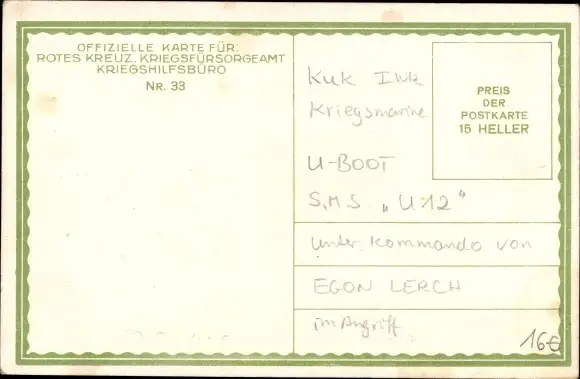 OFFIZIELLE KARTE FÜR:
ROTES KREUZ, KRIEGSFÜRSORGEAMT
KRIEGSHILFSBÜRO
NR. 33
PREIS
DER
POSTKARTE
15 HELLER
KuK
Kriegsmarine
U-BOOT
S.M.S. „U:12"
unter Kommando von
EGON LERCH
im Angriff
16€